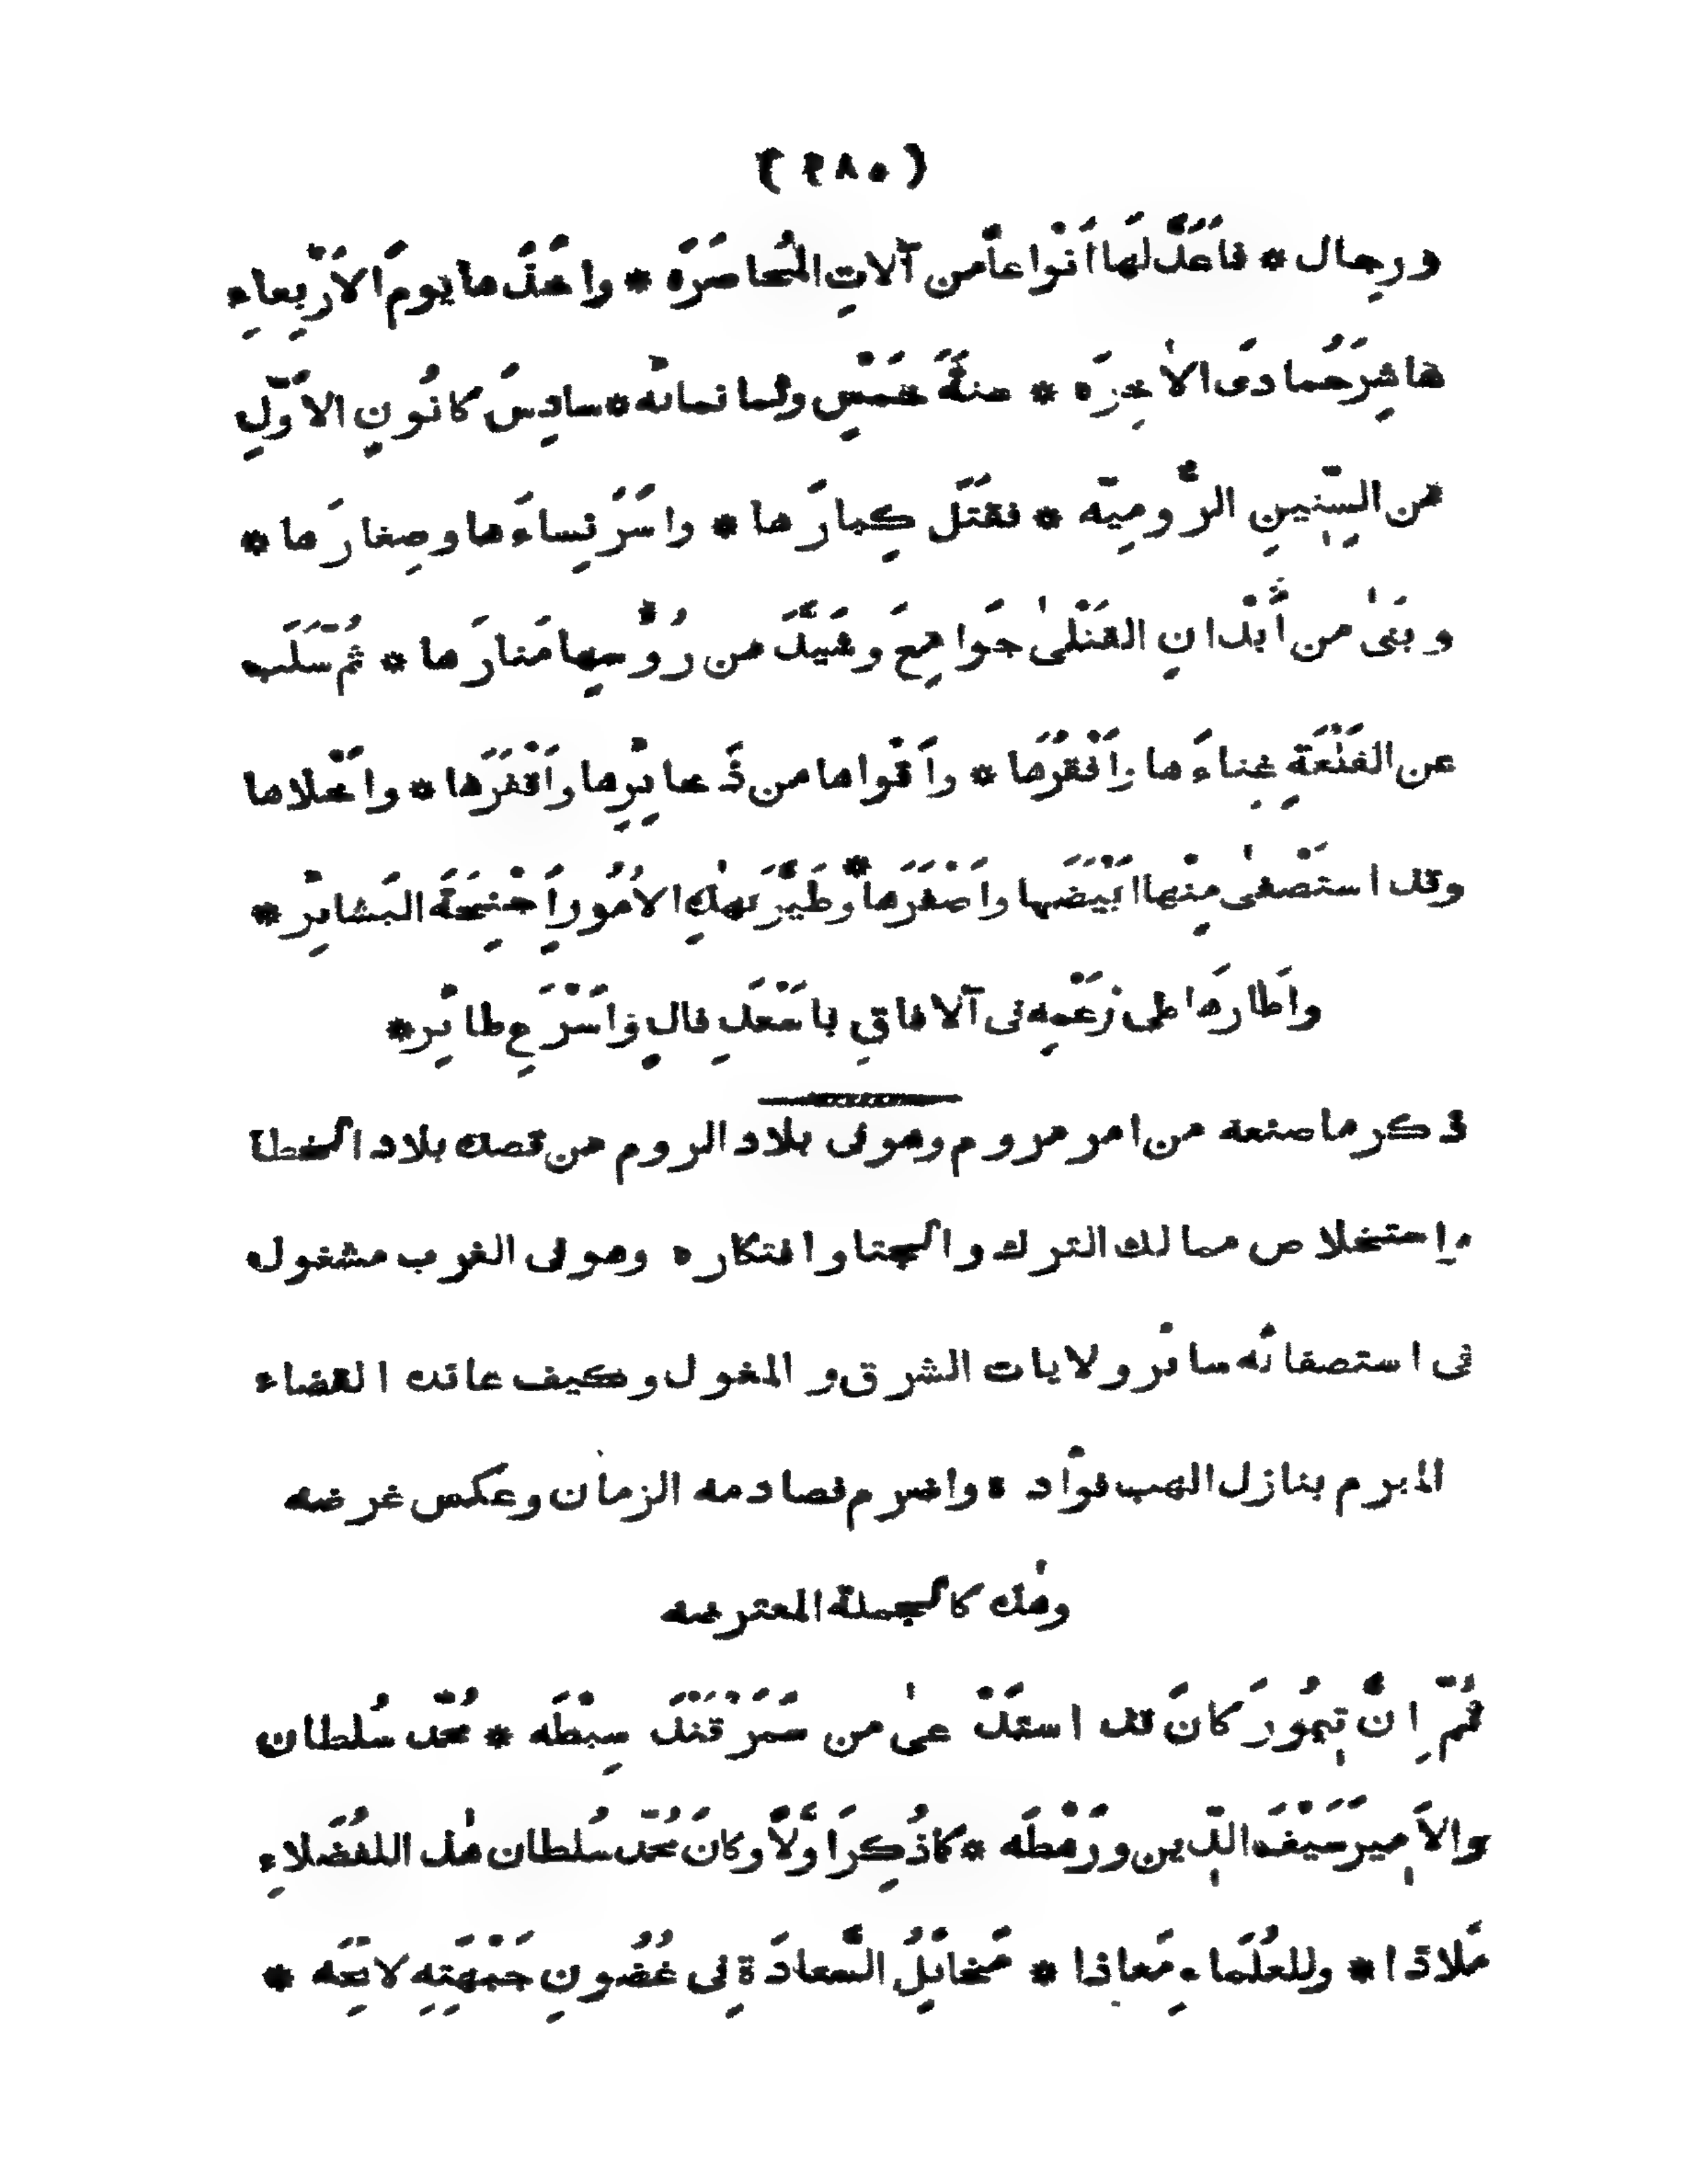 ( ٤٨٠ )
ورِجال * فاَعَدَّ لَها اَنْواعاً من آلاتِ المُحاصَرَه * واخَذَها يومَ الاَرْبِعاءِ
عاشِرَ جُمادَى الاٰخِرَه * سنةَ خَمْسٍ وثمانمائه * سادِسَ كانُونِ الاَوّلِ
من السِّنينِ الرُّوميّه * فقتَل كِبارَها * واسَرَ نِساءَها وصِغارَها *
وبَنىٰ من أَبْدانِ القَتلىٰ جَوامِعَ وشَيَّدَ من رُوُسِها مَنارَها * ثُمّ سَلَب
عن القَلْعَةِ غِناءَها وافْقَرَها * واَقْواها من ذَخايِرِها واَقْفَرَها * واخْلاها
وقد استَصْفىٰ مِنْها اَبْيَضَها واَصْفَرَها * وطَيَّرَ بهٰذِهِ الاُمُورِ اَجْنِحَةَ البَشايِرْ *
واَطارَها على زَعْمِه فى آلافاقِ باَسْعَدِ فالٍ واَسْرَعِ طايِر *
ذكر ما صنعه من امر مروم وهو فى بلاد الروم من قصد بلاد الخطا
واستخلاص ممالك الترك والجتا وافتكاره وهو فى الغرب مشغول
فى استصفائه سائر ولايات الشرق والمغول وكيف عانده القضاء
المبرم بنازل الهب فواده واضرم فصادمه الزمان وعكس غرضه
وهٰذه كالجملة المعترضه
ثُمّ اِنَّ تِيمُورَ كانَ قد استَدْعىٰ من سَمَرْقَنْدَ سِبْطَه * مُحمّد سُلطان
والاَمِيرَ سَيْفَ الدِّين ورَهْطَه * كما ذُكِرَ اَوّلاً وكانَ مُحمّد سُلطان هٰذا للفُضَلاءِ
مَلاذا * وللعُلَماءِ مَعاذا * مَخايِلُ السَّعادَةِ فى غُضُونِ جَبْهَتِهِ لايِحَه *